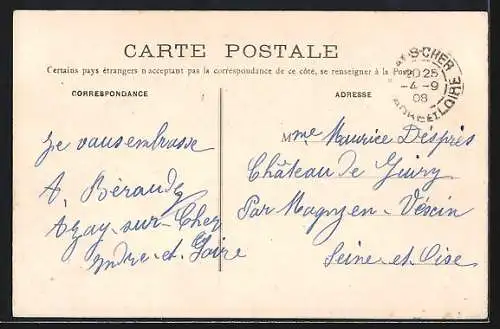 CARTE POSTALE
Certains pays étrangers n'acceptant pas la correspondance de ce côté, se renseigner à la Poste
CORRESPONDANCE
ADRESSE
S-CHER
20 25
-4 -9
08
LOIRE
Je vous embrasse
A. Béraudy
Azay-sur-Cher
Indre-et-Loire
Mme Maurice Després
Château de Guiry
Par Magny-en-Vexin
Seine-et-Oise